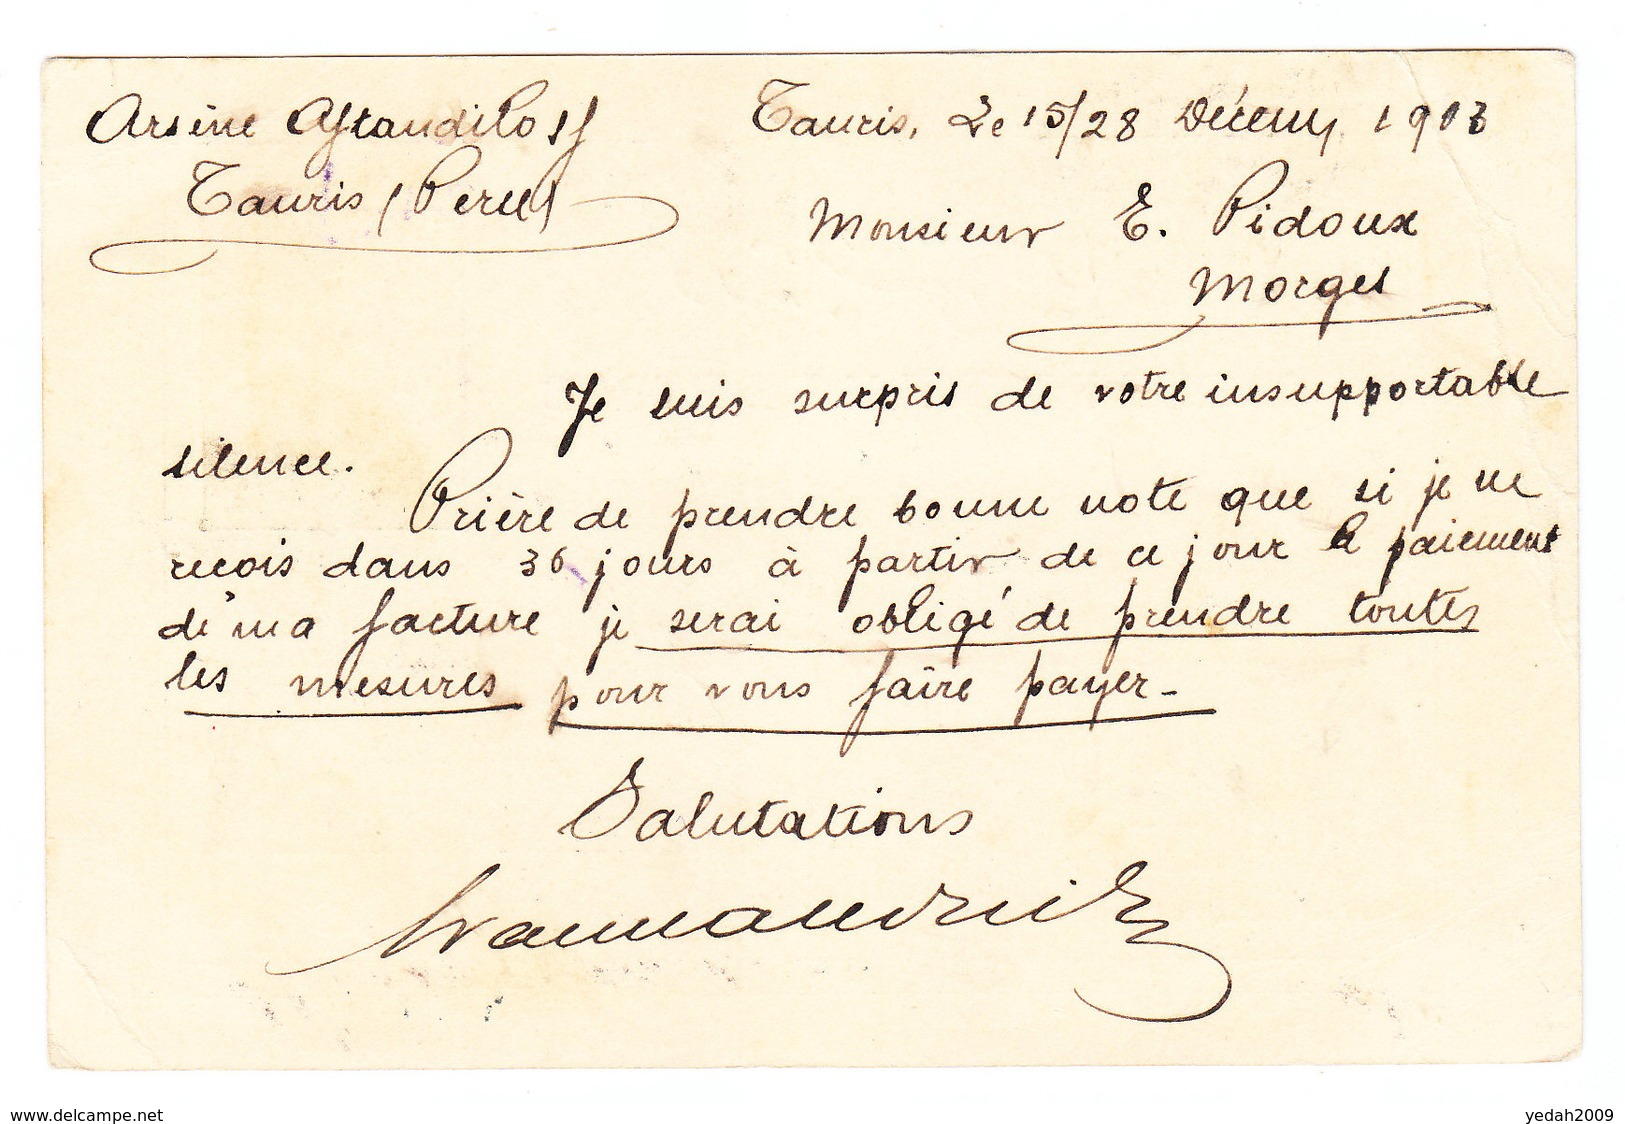 Arsène Aftandiloff
Tauris, Le 15/28 Décem 1903
Tauris (Perse)
Monsieur E. Pidoux
Morges
Je suis surpris de votre insupportable
silence.
Prière de prendre bonne note que si je ne
reçois dans 30 jours à partir de ce jour le paiement
de ma facture je serai obligé de prendre toutes
les mesures pour vous faire payer -
Salutations
www.delcampe.net
yedah2009